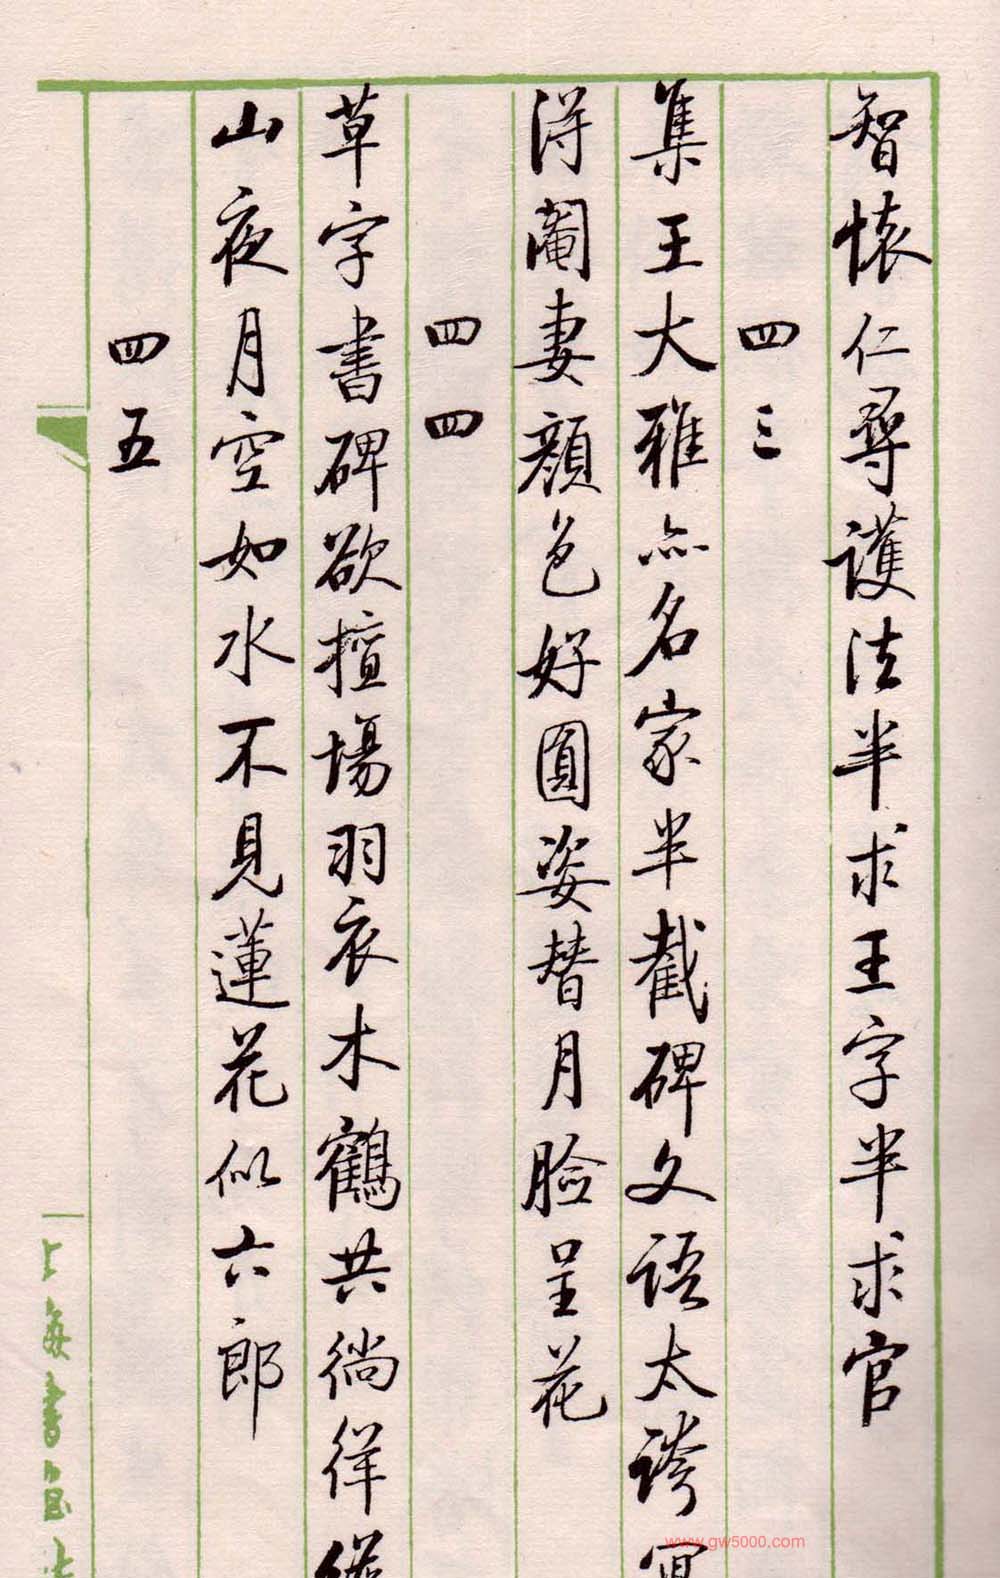 智懷仁尋護法半求王字半求官
四三
集王大雅亦名家半截碑文語太誇
得閹妻顏色好圓姿替月臉呈花
四四
草字書碑欲擅場羽衣木鶴共徜徉
山夜月空如水不見蓮花似六郎
四五
上海書畫
www.gw5000.com